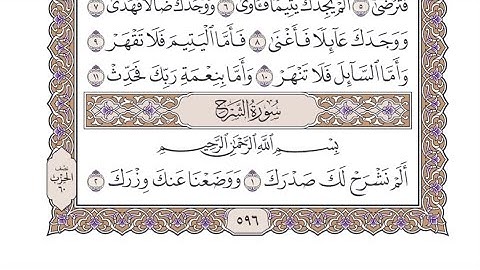 فَتَرْضَىٰٓ ٥ أَلَمْ يَجِدْكَ يَتِيمًا فَـَٔاوَىٰ ٦ وَوَجَدَكَ ضَآلًّا فَهَدَىٰ ٧
وَوَجَدَكَ عَآئِلًا فَأَغْنَىٰ ٨ فَأَمَّا ٱلْيَتِيمَ فَلَا تَقْهَرْ ٩
وَأَمَّا ٱلسَّآئِلَ فَلَا تَنْهَرْ ١٠ وَأَمَّا بِنِعْمَةِ رَبِّكَ فَحَدِّثْ ١١
سُورَةُ الشَّرْحِ
بِسْمِ ٱللَّهِ ٱلرَّحْمَٰنِ ٱلرَّحِيمِ
أَلَمْ نَشْرَحْ لَكَ صَدْرَكَ ١ وَوَضَعْنَا عَنكَ وِزْرَكَ ٢
الحزب
٦٠
٥٩٦